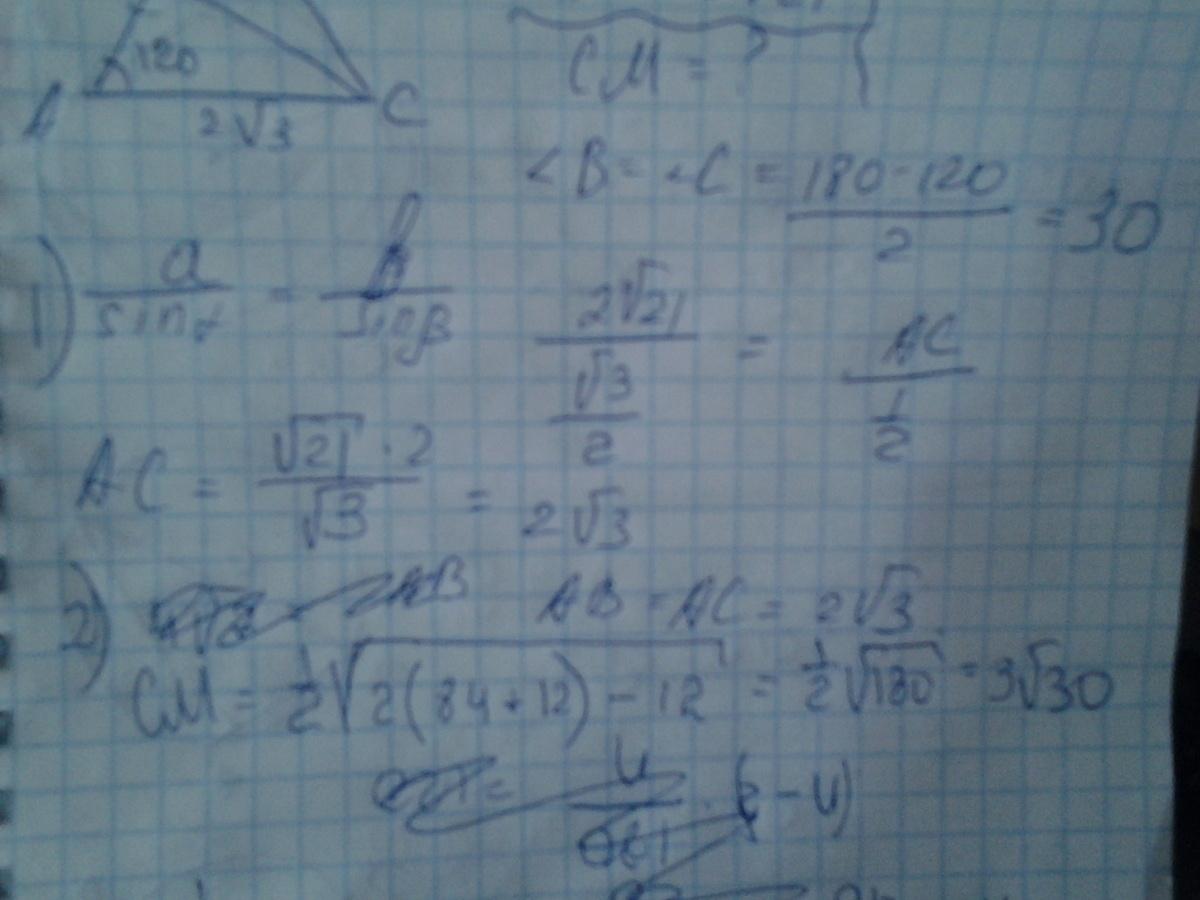 120
A
2√3
C
CM = ?
<B = <C = (180-120)/2 = 30
1) a/sinα = b/sinβ
2√21/(√3/2) = AC/(1/2)
AC = (√21 · 2)/√3 = 2√3
2) AB AB = AC = 2√3
CM = 1/2 √(2(84+12)-12) = 1/2 √180 = 3√30